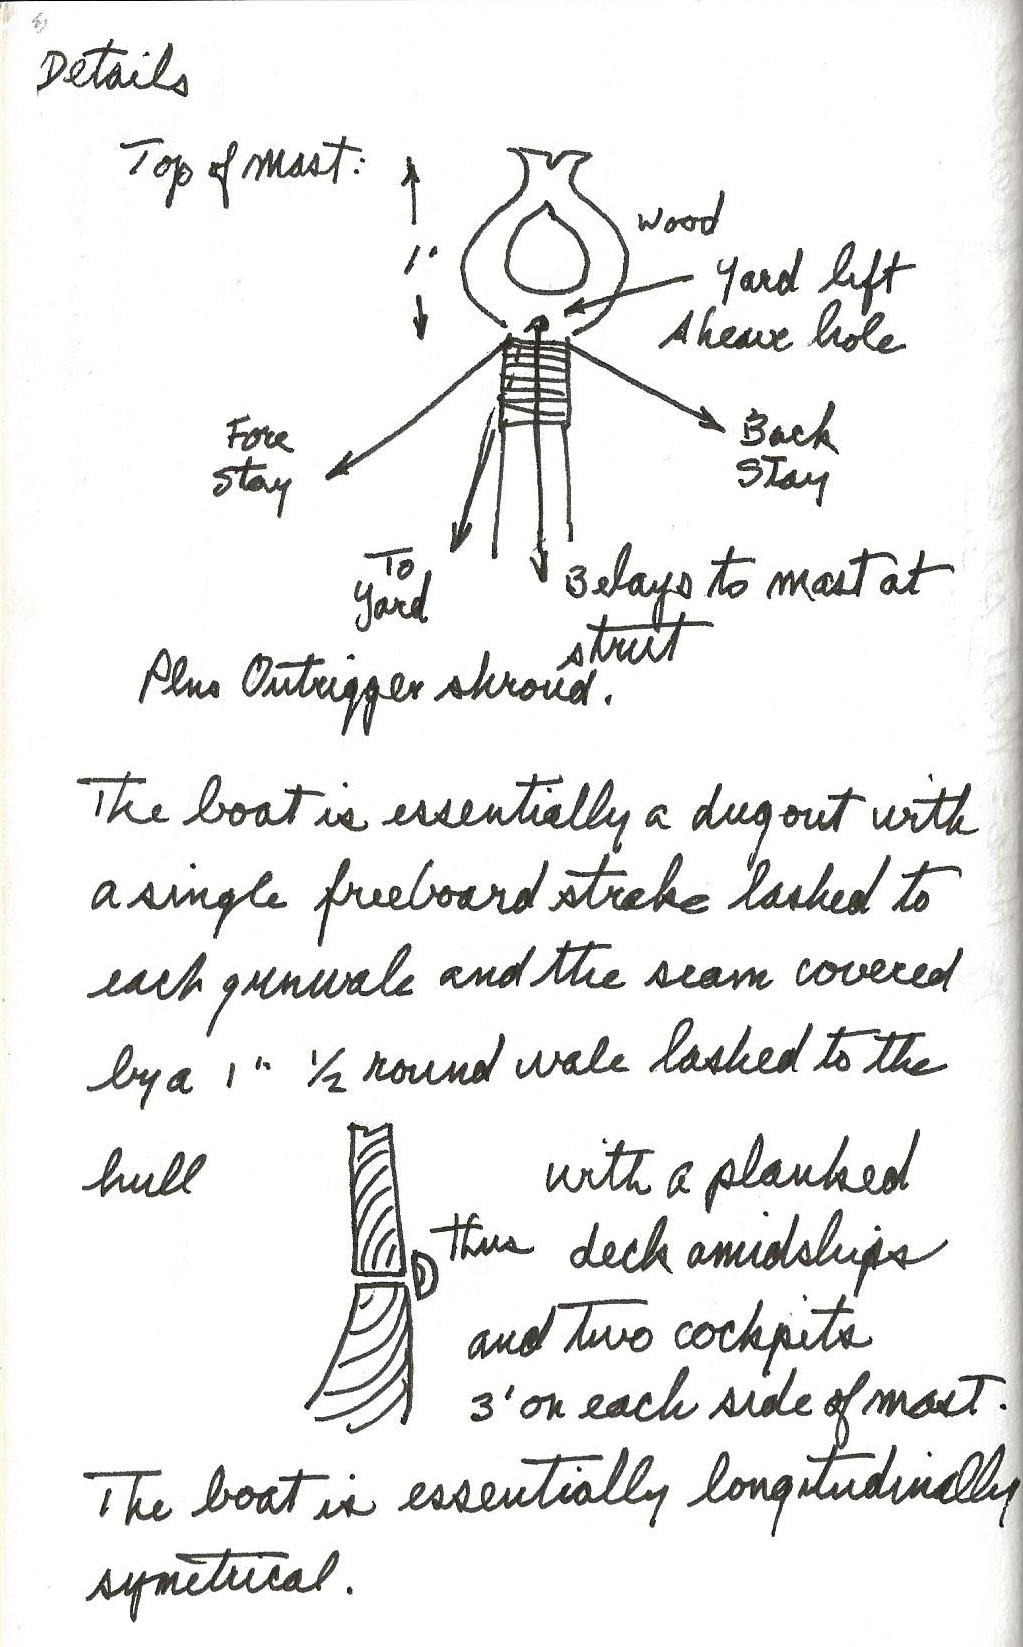 Details
Top of mast:
1"
Wood
Yard lift
sheave hole
Fore
Stay
Back
Stay
To
Yard
Belays to mast at
strut
Plus Outrigger shroud.
The boat is essentially a dugout with
a single freeboard strake lashed to
each gunwale and the seam covered
by a 1" ½ round wale lashed to the
hull
thus
with a planked
deck amidships
and two cockpits
3' on each side of mast.
The boat is essentially longitudinally
symetrical.